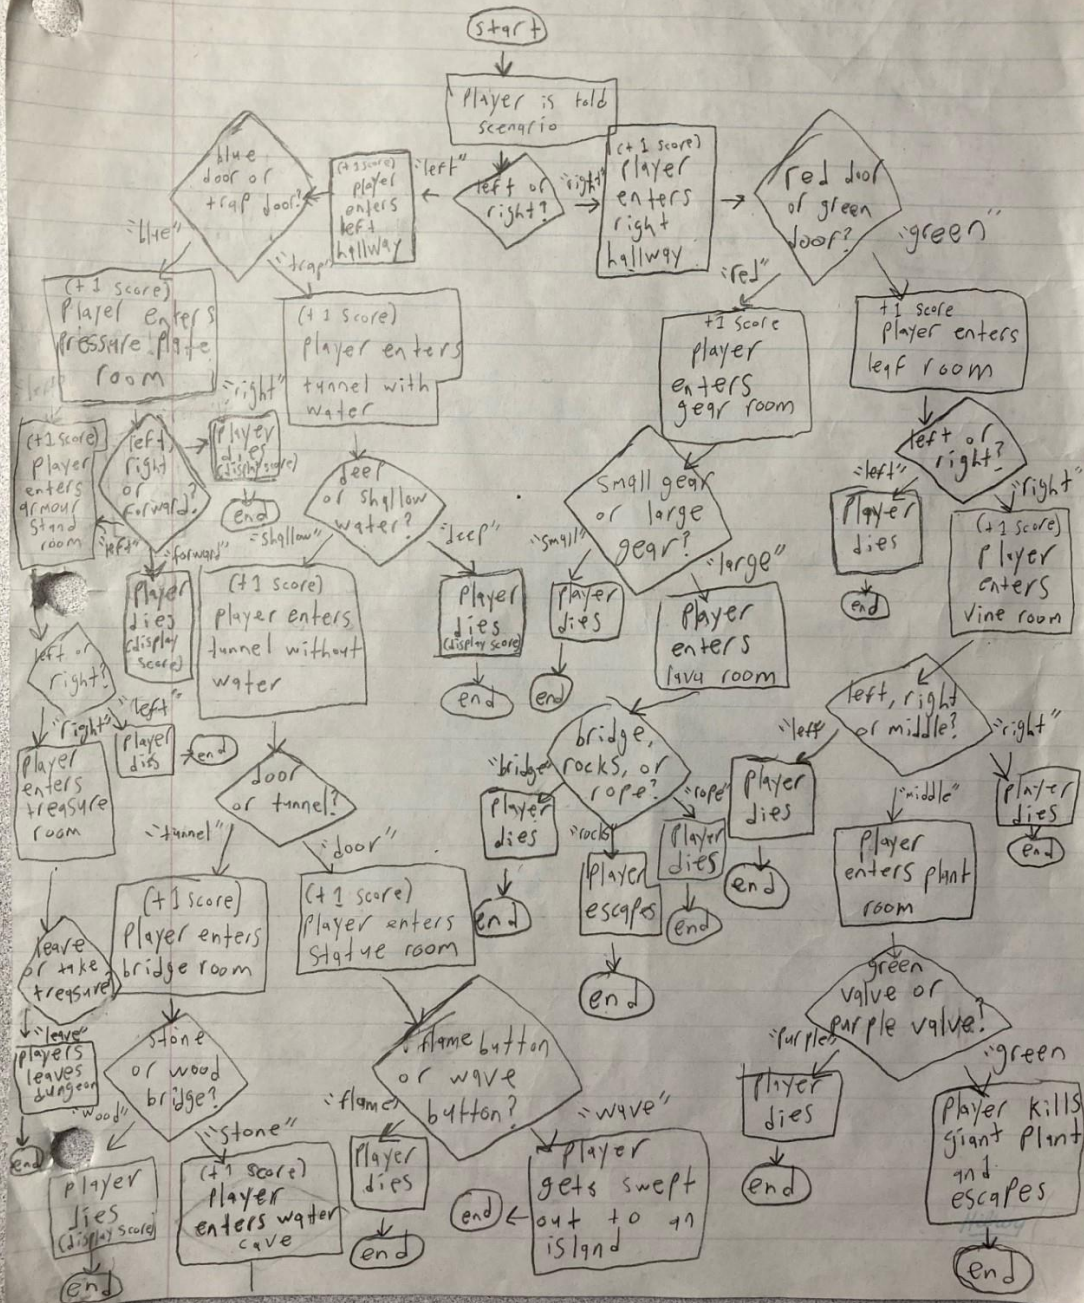 start
Player is told
scenario
left or
right?
"left"
"right"
(+1 score)
player
enters
left
hallway
(+1 score)
player
enters
right
hallway
blue
door or
trap door?
"blue"
"trap"
red door
or green
door?
"red"
"green"
(+1 score)
Player enters
pressure plate
room
(+1 score)
player enters
tunnel with
water
+1 score
player
enters
gear room
+1 score
player enters
leaf room
left,
right
or
forward?
"left"
"right"
"left"
"forward"
Player
dies
(display score)
end
(+1 score)
player
enters
armour
stand
room
player
dies
(display
score)
deep
or shallow
water?
"shallow"
"deep"
(+1 score)
player enters
tunnel without
water
player
dies
(display score)
end
small gear
or large
gear?
"small"
"large"
player
dies
end
player
enters
lava room
left or
right?
"left"
"right"
Player
dies
end
(+1 score)
player
enters
vine room
left or
right?
"right"
"left"
player
dies
end
player
enters
treasure
room
door
or tunnel?
"tunnel"
"door"
bridge,
rocks, or
rope?
"bridge"
"rocks"
"rope"
player
dies
end
player
escapes
end
player
dies
end
left, right
or middle?
"left"
"middle"
"right"
player
dies
end
player
enters plant
room
player
dies
end
leave
or take
treasure
"leave"
players
leaves
dungeon
end
(+1 score)
player enters
bridge room
(+1 score)
player enters
statue room
stone
or wood
bridge?
"wood"
"stone"
player
dies
(display score)
end
(+1 score)
player
enters water
cave
flame button
or wave
button?
"flame"
"wave"
player
dies
end
player
gets swept
out to an
island
end
green
valve or
purple valve?
"purple"
"green"
player
dies
end
player kills
giant plant
and
escapes
end